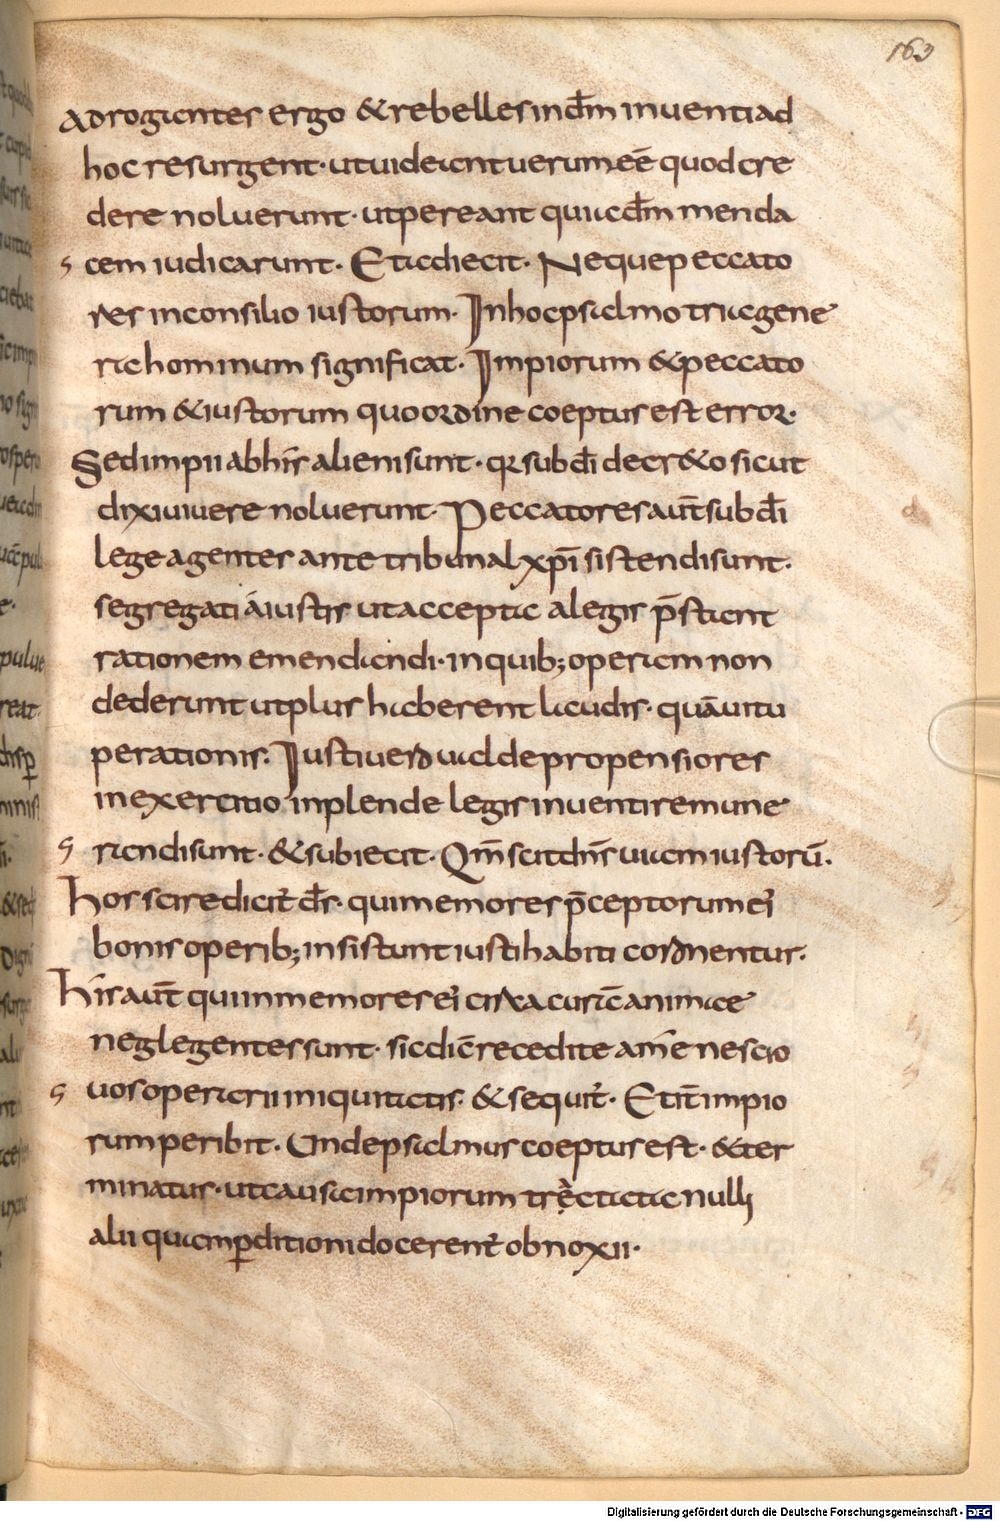 163
adrogantes ergo & rebelles in dm̄ inventi ad
hoc resurgent· ut uideant uerum eē quod cre
dere noluerunt· ut pereant qui adm̄ menda
cem iudicarunt· Et adiecit· Neque peccato
res in consilio iustorum· In hoc psalmo tria gene
ra hominum significat· Impiorum & peccato
rum & iustorum quo ordine coeptus est error·
Sed impii ab his alieni sunt· q̄ sub dī decr&o sicut
dixi uiuere noluerunt· Peccatores aut̄ sub dī
lege agentes ante tribunal xpī sistendi sunt·
segregati á iustis ut acceptae legis p̄stent
rationem emendandi· in quib; operam non
dederunt ut plus haberent laudis· quā uitu
perationis· Iusti uero ualde propensiores
in exercitio inplende legis inuenti remune
randi sunt· & subiecit· Qm̄ scit dn̄s uiam iustorū·
Hos scire dicit' ds̄· qui memores p̄ceptorum ei'
bonis operib; insistunt iusti habiti coronentur·
His aut̄ qui inmemores ei' circa curā animae
neglegentes sunt· sic dic̄ recedite a me nescio
uos operarii iniquitatis· & sequit'· Et it̄ impio
rum peribit· Unde psalmus coeptus est· & ter
minatus· ut causa impiorum tręctata nulli
alii quam p̄ditioni docerent' obnoxii·
Digitalisierung gefördert durch die Deutsche Forschungsgemeinschaft - DFG